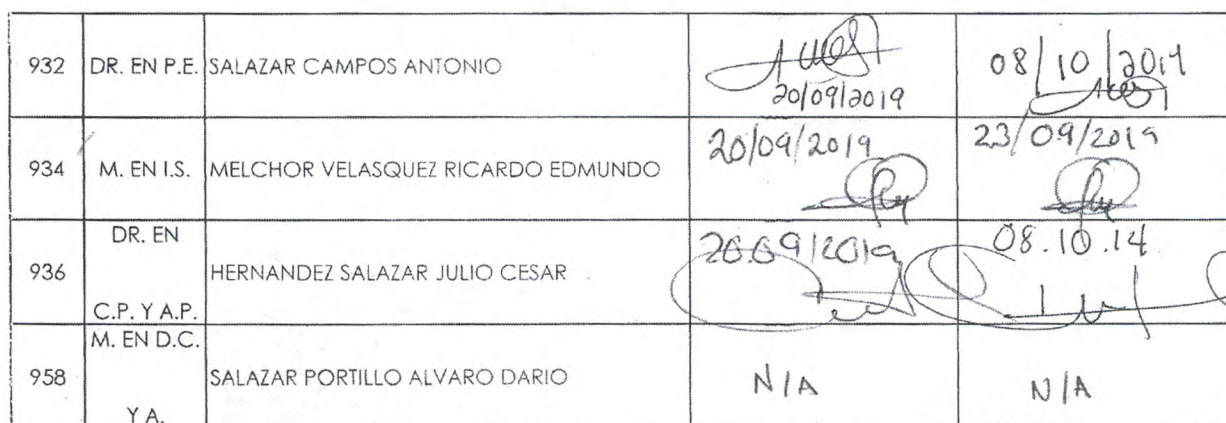 932 DR. EN P.E. SALAZAR CAMPOS ANTONIO 20/09/2019 08/10/2019
934 M. EN I.S. MELCHOR VELASQUEZ RICARDO EDMUNDO 20/09/2019 23/09/2019
DR. EN
936 HERNANDEZ SALAZAR JULIO CESAR 20.09/2019 08.10.19
C.P. Y A.P.
M. EN D.C.
958 SALAZAR PORTILLO ALVARO DARIO N/A N/A
Y A.